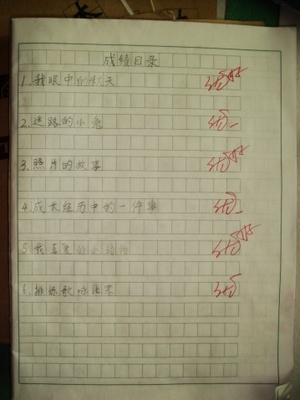 成绩目录
1.我眼中的秋天 优
2.迷路的小 优
3.照片的故事 优
4.成长经历中的一件事 优
5.我喜爱的 优
6. 歌咏比赛 优